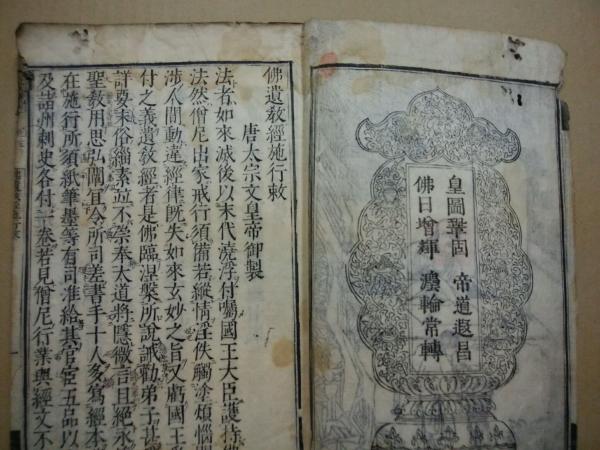 皇圖鞏固　帝道遐昌
佛日增輝　灋輪常轉
佛遺教經施行敕
唐太宗文皇帝御製
法者如來滅後以末代澆浮付囑國王大臣護持佛
法然僧尼出家戒行須備若縱情淫佚觸塗煩惱關
涉人間動違經律旣失如來玄妙之旨又虧國王受
付之義遺教經者是佛臨涅槃所說誡勸弟子甚
詳要末俗緇素並不崇奉大道將隱微言且絕永
聖教用思弘闡宜令所司差書手十人多寫經本
在施行所須紙筆墨等有司准給其官宦五品以
及諸州刺史各付一卷若見僧尼行業與經文不